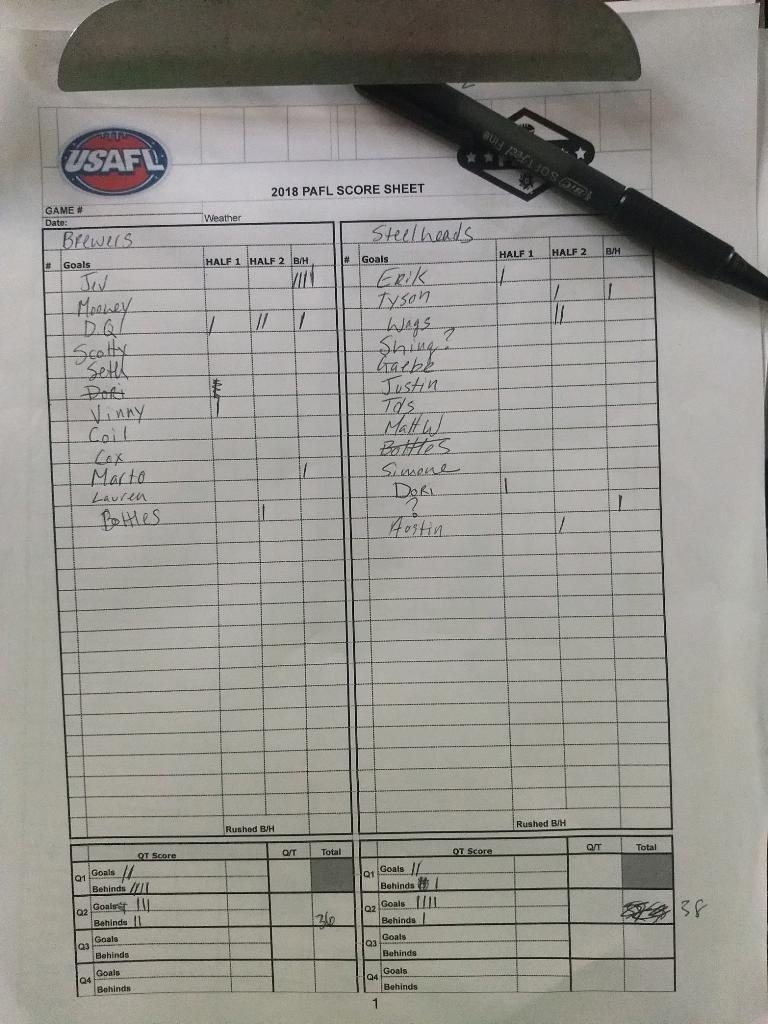 USAFL
SOFTFeel Fine
2018 PAFL SCORE SHEET
GAME #
Date:
Weather
Brewers
# Goals HALF 1 HALF 2 B/H
Jev ||||
Mooney
D.Q | || |
Scotty
Seth
Dori
Vinny |
Coil
Cox
Marto |
Lauren
Bottles |
Rushed B/H
Steelheads
# Goals HALF 1 HALF 2 B/H
Erik |
Tyson | |
Wags ||
Shing?
Gaebe
Justin
Tds
Matt W
Bottles
Simone
Dori |
? |
Austin |
Rushed B/H
QT Score Q/T Total
Q1 Goals ||
Behinds ||||
Q2 Goals |||
Behinds || 36
Q3 Goals
Behinds
Q4 Goals
Behinds
QT Score Q/T Total
Q1 Goals ||
Behinds |
Q2 Goals |||| 38
Behinds |
Q3 Goals
Behinds
Q4 Goals
Behinds
1